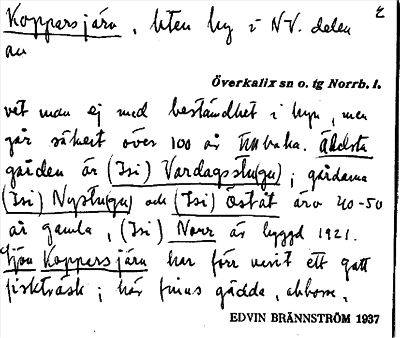 Koppersjärv, liten by i NV. delen
av
Överkalix sn o. tg Norrb. l.
vet man ej med bestämdhet i byn, men
går säkert över 100 år tillbaka. Äldsta
gården är (Isi) Vardagsstu(gu); gårdarna
(Isi) Nystu(gu) och (Isi) Öståt äro 40-50
år gamla, (Isi) Norr är byggd 1921.
Sjön Koppersjärv har förr varit ett gott
fiskträsk; här finns gädda, abborre,
EDVIN BRÄNNSTRÖM 1937